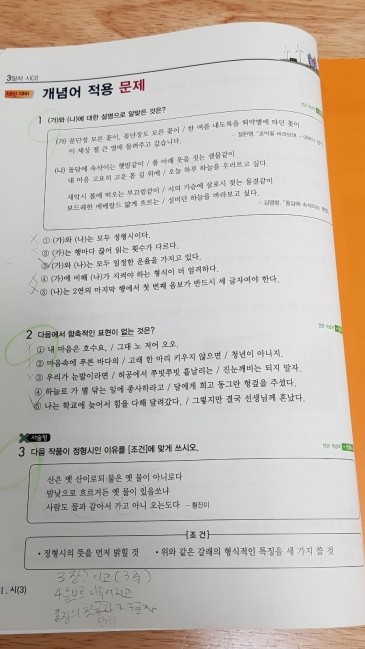 3일차 시(3)
내신 대비 개념어 적용 문제
1 (가)와 (나)에 대한 설명으로 알맞은 것은?
(가) 꽃단장 모른 꽃이, 꽃단장도 모른 꽃이 / 한 여름 내도록을 뙤약볕에 타던 꽃이
이 세상 젤 큰 열매 물려주고 갔습니다.
(나) 돌담에 속삭이는 햇발같이 / 풀 아래 웃음 짓는 샘물같이
내 마음 고요히 고운 봄 길 위에 / 오늘 하루 하늘을 우러르고 싶다.
새악시 볼에 떠오는 부끄럼같이 / 시의 가슴에 살포시 젖는 물결같이
보드레한 에메랄드 얇게 흐르는 / 실비단 하늘을 바라보고 싶다.
- 김영랑, 「돌담에 속삭이는
① (가)와 (나)는 모두 정형시이다.
② (가)는 행마다 끊어 읽는 횟수가 다르다.
③ (가)와 (나)는 모두 일정한 운율을 가지고 있다.
④ (가)에 비해 (나)가 지켜야 하는 형식이 더 엄격하다.
⑤ (나)는 2연의 마지막 행에서 첫 번째 음보가 반드시 세 글자여야 한다.
2 다음에서 함축적인 표현이 없는 것은?
① 내 마음은 호수요, / 그대 노 저어 오오.
② 마음속에 푸른 바다의 / 고래 한 마리 키우지 않으면 / 청년이 아니지.
③ 우리가 눈발이라면 / 허공에서 쭈빗쭈빗 흩날리는 / 진눈깨비는 되지 말자.
④ 하늘로 가 별 닦는 일에 종사하라고 / 달에게 희고 동그란 헝겊을 주셨다.
⑤ 나는 학교에 늦어서 힘을 다해 달려갔다. / 그렇지만 결국 선생님께 혼났다.
서술형
3 다음 작품이 정형시인 이유를 [조건]에 맞게 쓰시오.
산은 옛 산이로되 물은 옛 물이 아니로다
밤낮으로 흐르거든 옛 물이 있을쏘냐
사람도 물과 같아서 가고 아니 오는도다 - 황진이
[조건]
• 정형시의 뜻을 먼저 밝힐 것 • 위와 같은 갈래의 형식적인 특징을 세 가지 쓸 것
3장 이고 (3주)
4음보로 이루어지고
I. 시(3)